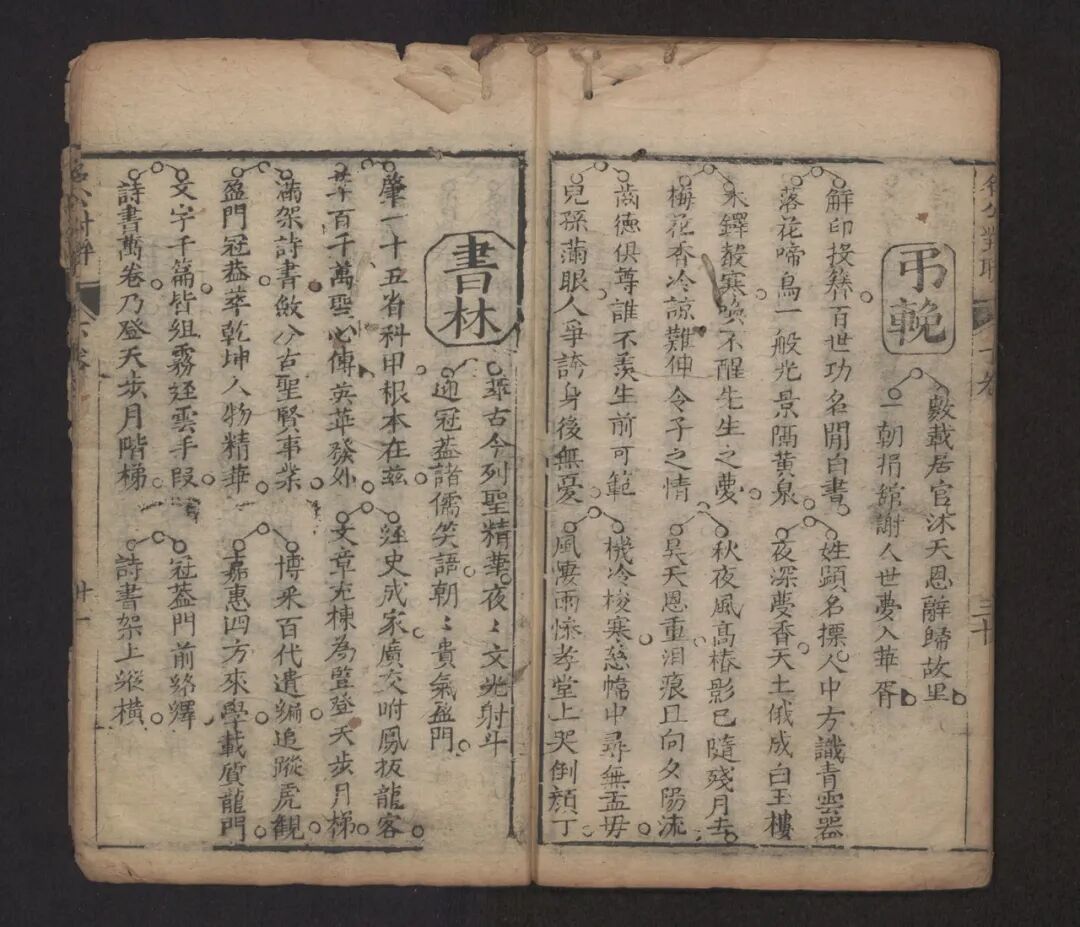 弔輓
數載居官沐天恩辭歸故里
一朝捐舘謝人世夢入華胥
解印投簪百世功名閒白晝
姓顕名摽人中方識青雲噐
落花啼鳥一般光景隔黄泉
夜深夢香天土俄成白玉樓
木鐸聲寒喚不醒先生之夢
秋夜風髙椿影已隨殘月去
梅花香冷諒難伸令子之情
昊天恩重泪痕且向夕陽流
齒德俱尊誰不羨生前可範
機冷梭寒慈幃中尋無孟母
兒孫蒲眼人爭誇身後無憂
風凄雨慘孝堂上哭倒顔丁
書林
萃古今列聖精華夜〻文光射斗
迎冠盖諸儒笑語朝〻貴氣盈門
肇一十五省科甲根本在兹
經史成家廣交咐鳳扳龍客
萃百千萬聖心傳英華發外
文章充棟為豋登天步月梯
滿架詩書敘分古聖賢事業
博采百代遺編追蹤虎観
盈門冠盖萃乾坤人物精華
嘉惠四方來學載質龍門
文字千篇皆組霧經雲手叚
冠盖門前絡繹
詩書萬卷乃登天步月階梯
詩書架上縱横
卄一